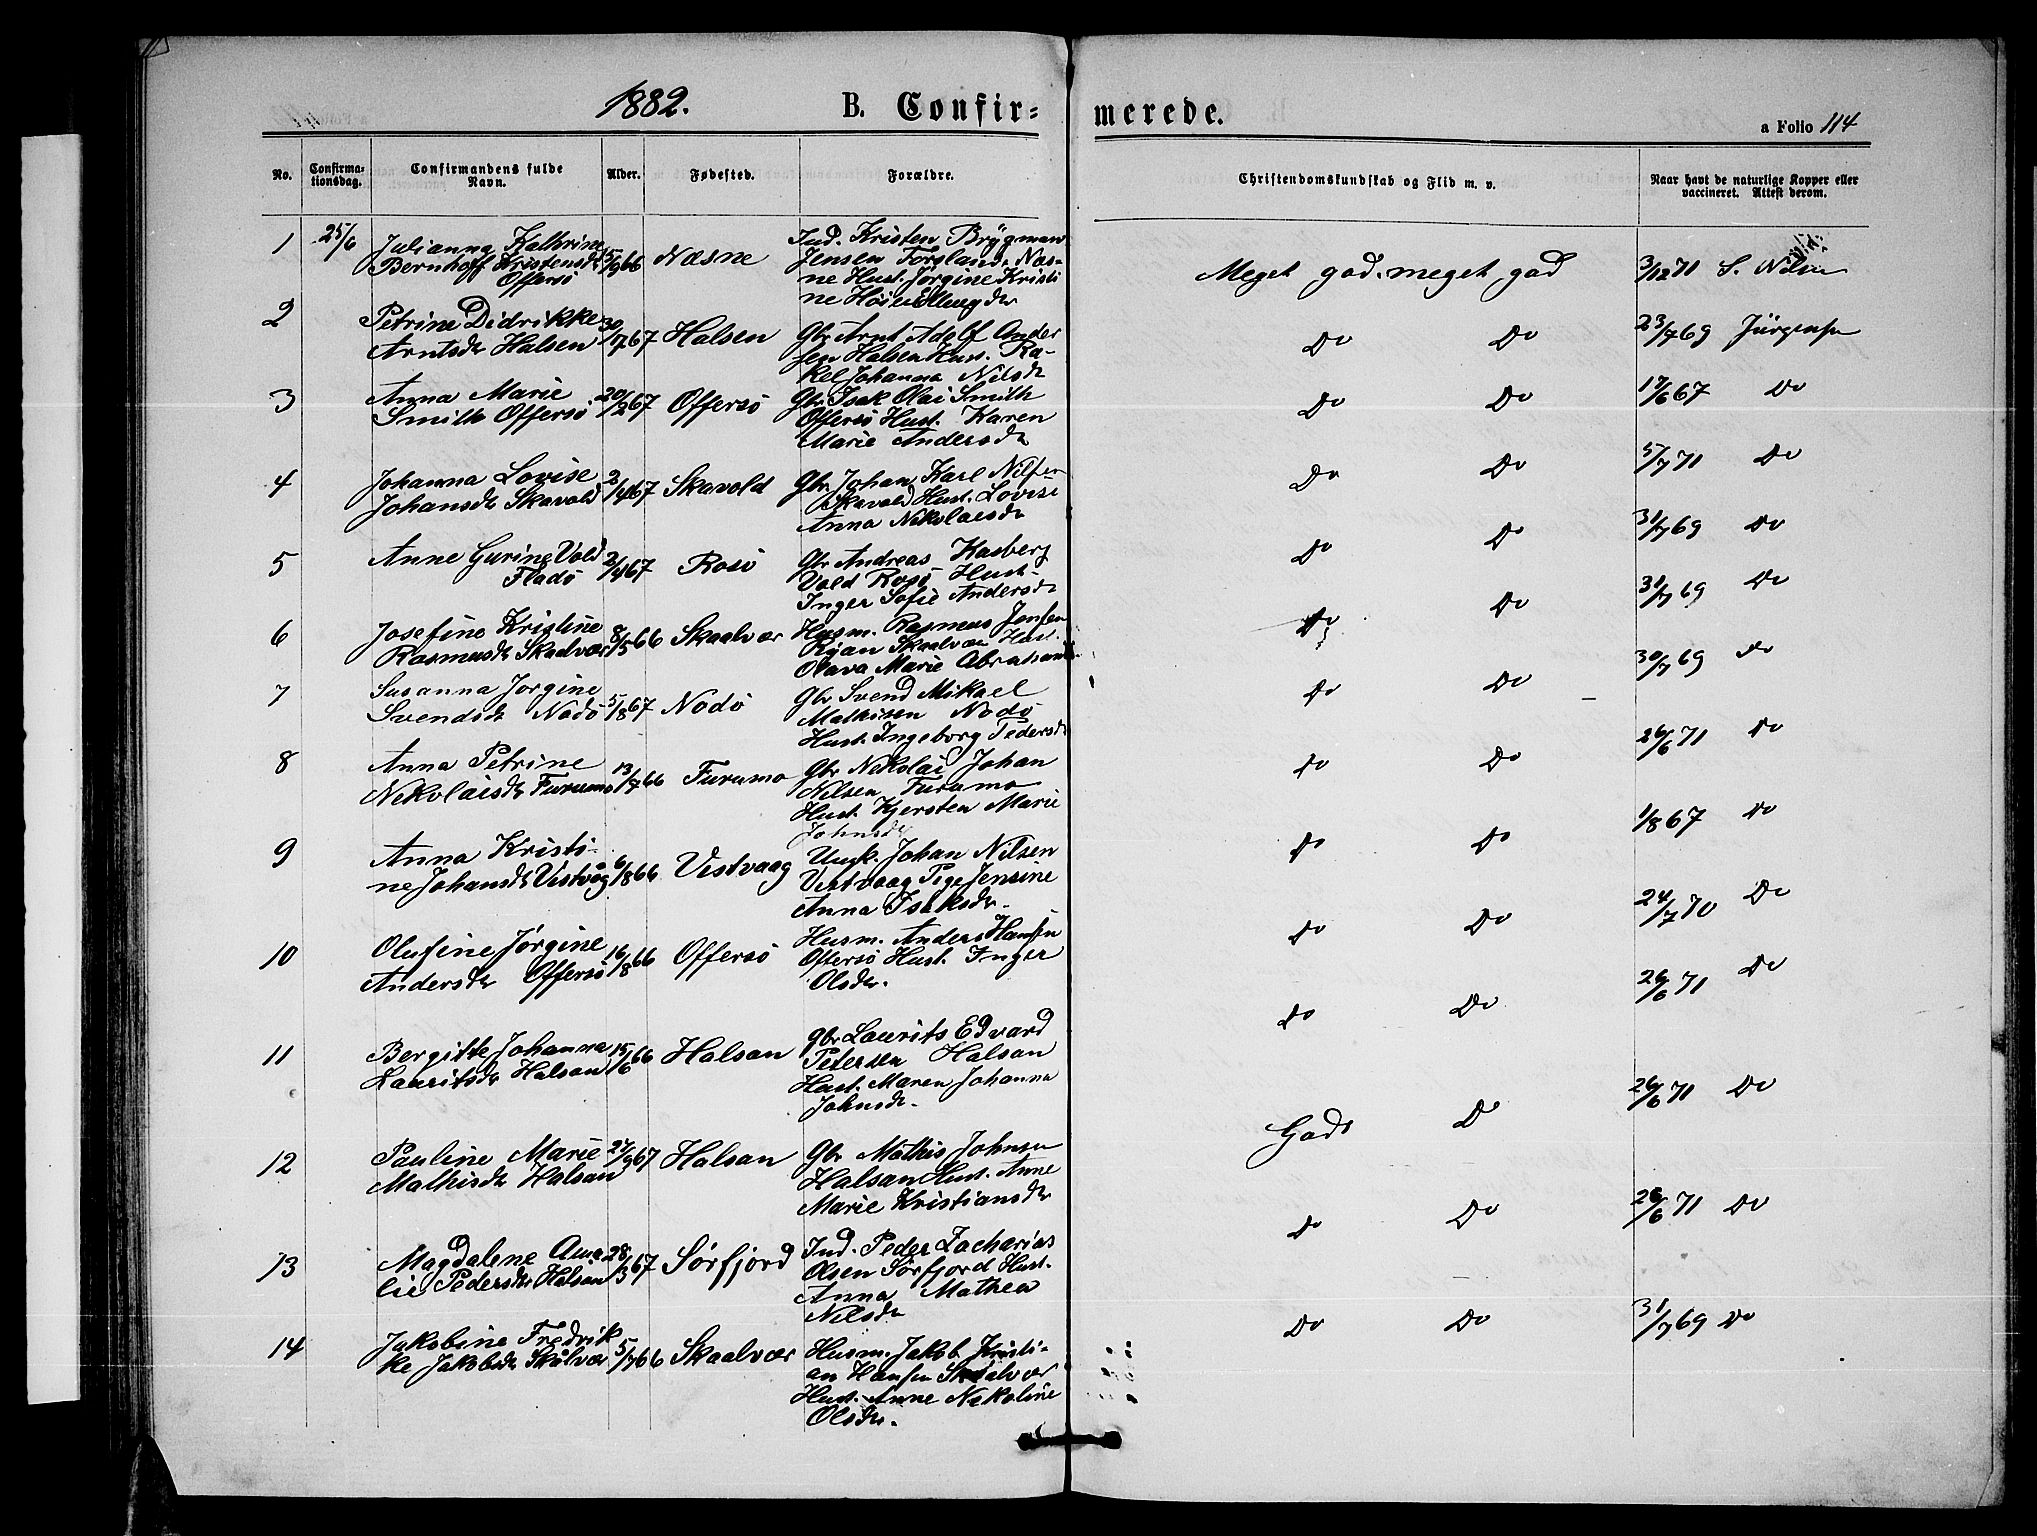 1882. B. Confir-
merede.
a Folio 114
No. Confirma-tionsdag. Confirmandens fulde Navn. Alder. Fødested. Forældre.
Christendomskundskab og Flid m. v. Naar havt de naturlige Kopper eller vaccineret. Attest derom.
1 25/6 Julianna Kathrine 5/9 66 Næsne Ind. Kristen Brygman
Bernhoff Kristensdr Jensen Forsland Næs-
Offersø ne Hust. Jørgine Kristi
ne
Meget god. meget god 3/12 71 S. Nilsen
2 Petrine Didrikke 30/1 67 Halsen Gbr Arnt Adolf Ander
Arntsdr Halsen sen Halsen Hust. Ra-
kel Johanna Nilsdr
Do Do 23/7 69 Jürgensen
3 Anna Marie 20/2 67 Offersø Gbr Isak Olai Smith
Smith Offersø Offersø Hust. Karen
Marie Andersdr
Do Do 17/6 67 Do
4 Johanna Lovise 2/4 67 Skavold Gbr Johan Karl Nilsen
Johansdr Skavold Skavold Hust. Lovise
Anna Nikolaisdr
Do Do 5/7 71 Do
5 Anne Gurine Vold 2/4 67 Rosø Gbr Andreas Kasberg
Fladø Vold Rosø Hust.
Inger Sofie Andersdr
Do Do 31/7 69 Do
6 Josefine Kristine 8/5 66 Skaalvær Husm. Rasmus Jensen
Rasmusdr Skaalvær Skaalvær Hust.
Olava Marie Abrahamsdr
Do Do 31/7 69 Do
7 Susanna Jørgine 5/8 67 Nodø Gbr Svend Mikael
Svendsdr Nodø Mathisen Nodø
Hust. Ingeborg Pedersdr
Do Do 30/7 69 Do
8 Anna Petrine 13/7 66 Furumo Gbr Nikolai Johan
Nikolaisdr Furumo Nilsen Furumo
Hust. Kjersten Marie
Johnsdr
Do Do 26/6 71 Do
9 Anna Kristi- 6/8 66 Vestvaag Ungk. Johan Nilsen
ne Johansdr Vestvåg Vestvaag Pige Jensine
Anna Isaksdr.
Do Do 1/8 67 Do
10 Olufine Jørgine 16/8 66 Offersø Husm. Anders Hansen
Andersdr Offersø Offersø Hust. Inger
Olsdr.
Do Do 24/7 70 Do
11 Bergitte Johanna 15/6 66 Halsan Gbr Laurits Edvard
Lauritsdr Halsan Petersen Halsan
Hust. Maren Johanna
Johnsdr.
Do Do 26/6 71 Do
12 Pauline Marie 24/9 67 Halsan Gbr Mathis Johnsen
Mathisdr Halsan Halsan Hust. Anne
Marie Kristiansdr
Godt Do 26/6 71 Do
13 Magdalene Ama 28/3 67 Sørfjord Ind. Peder Zacharias
lie Pedersdr Halsan Olsen Sørfjord Hust.
Anna Mathea
Nilsdr
Do Do 26/6 71 Do
14 Jakobine Fredrik 5/7 66 Skaalvær Husm. Jakob Kristi-
ke Jakobsdr Skålvær an Hansen Skaalvær
Hust. Anne Nikoline
Olsdr.
Do Do 31/7 69 Do